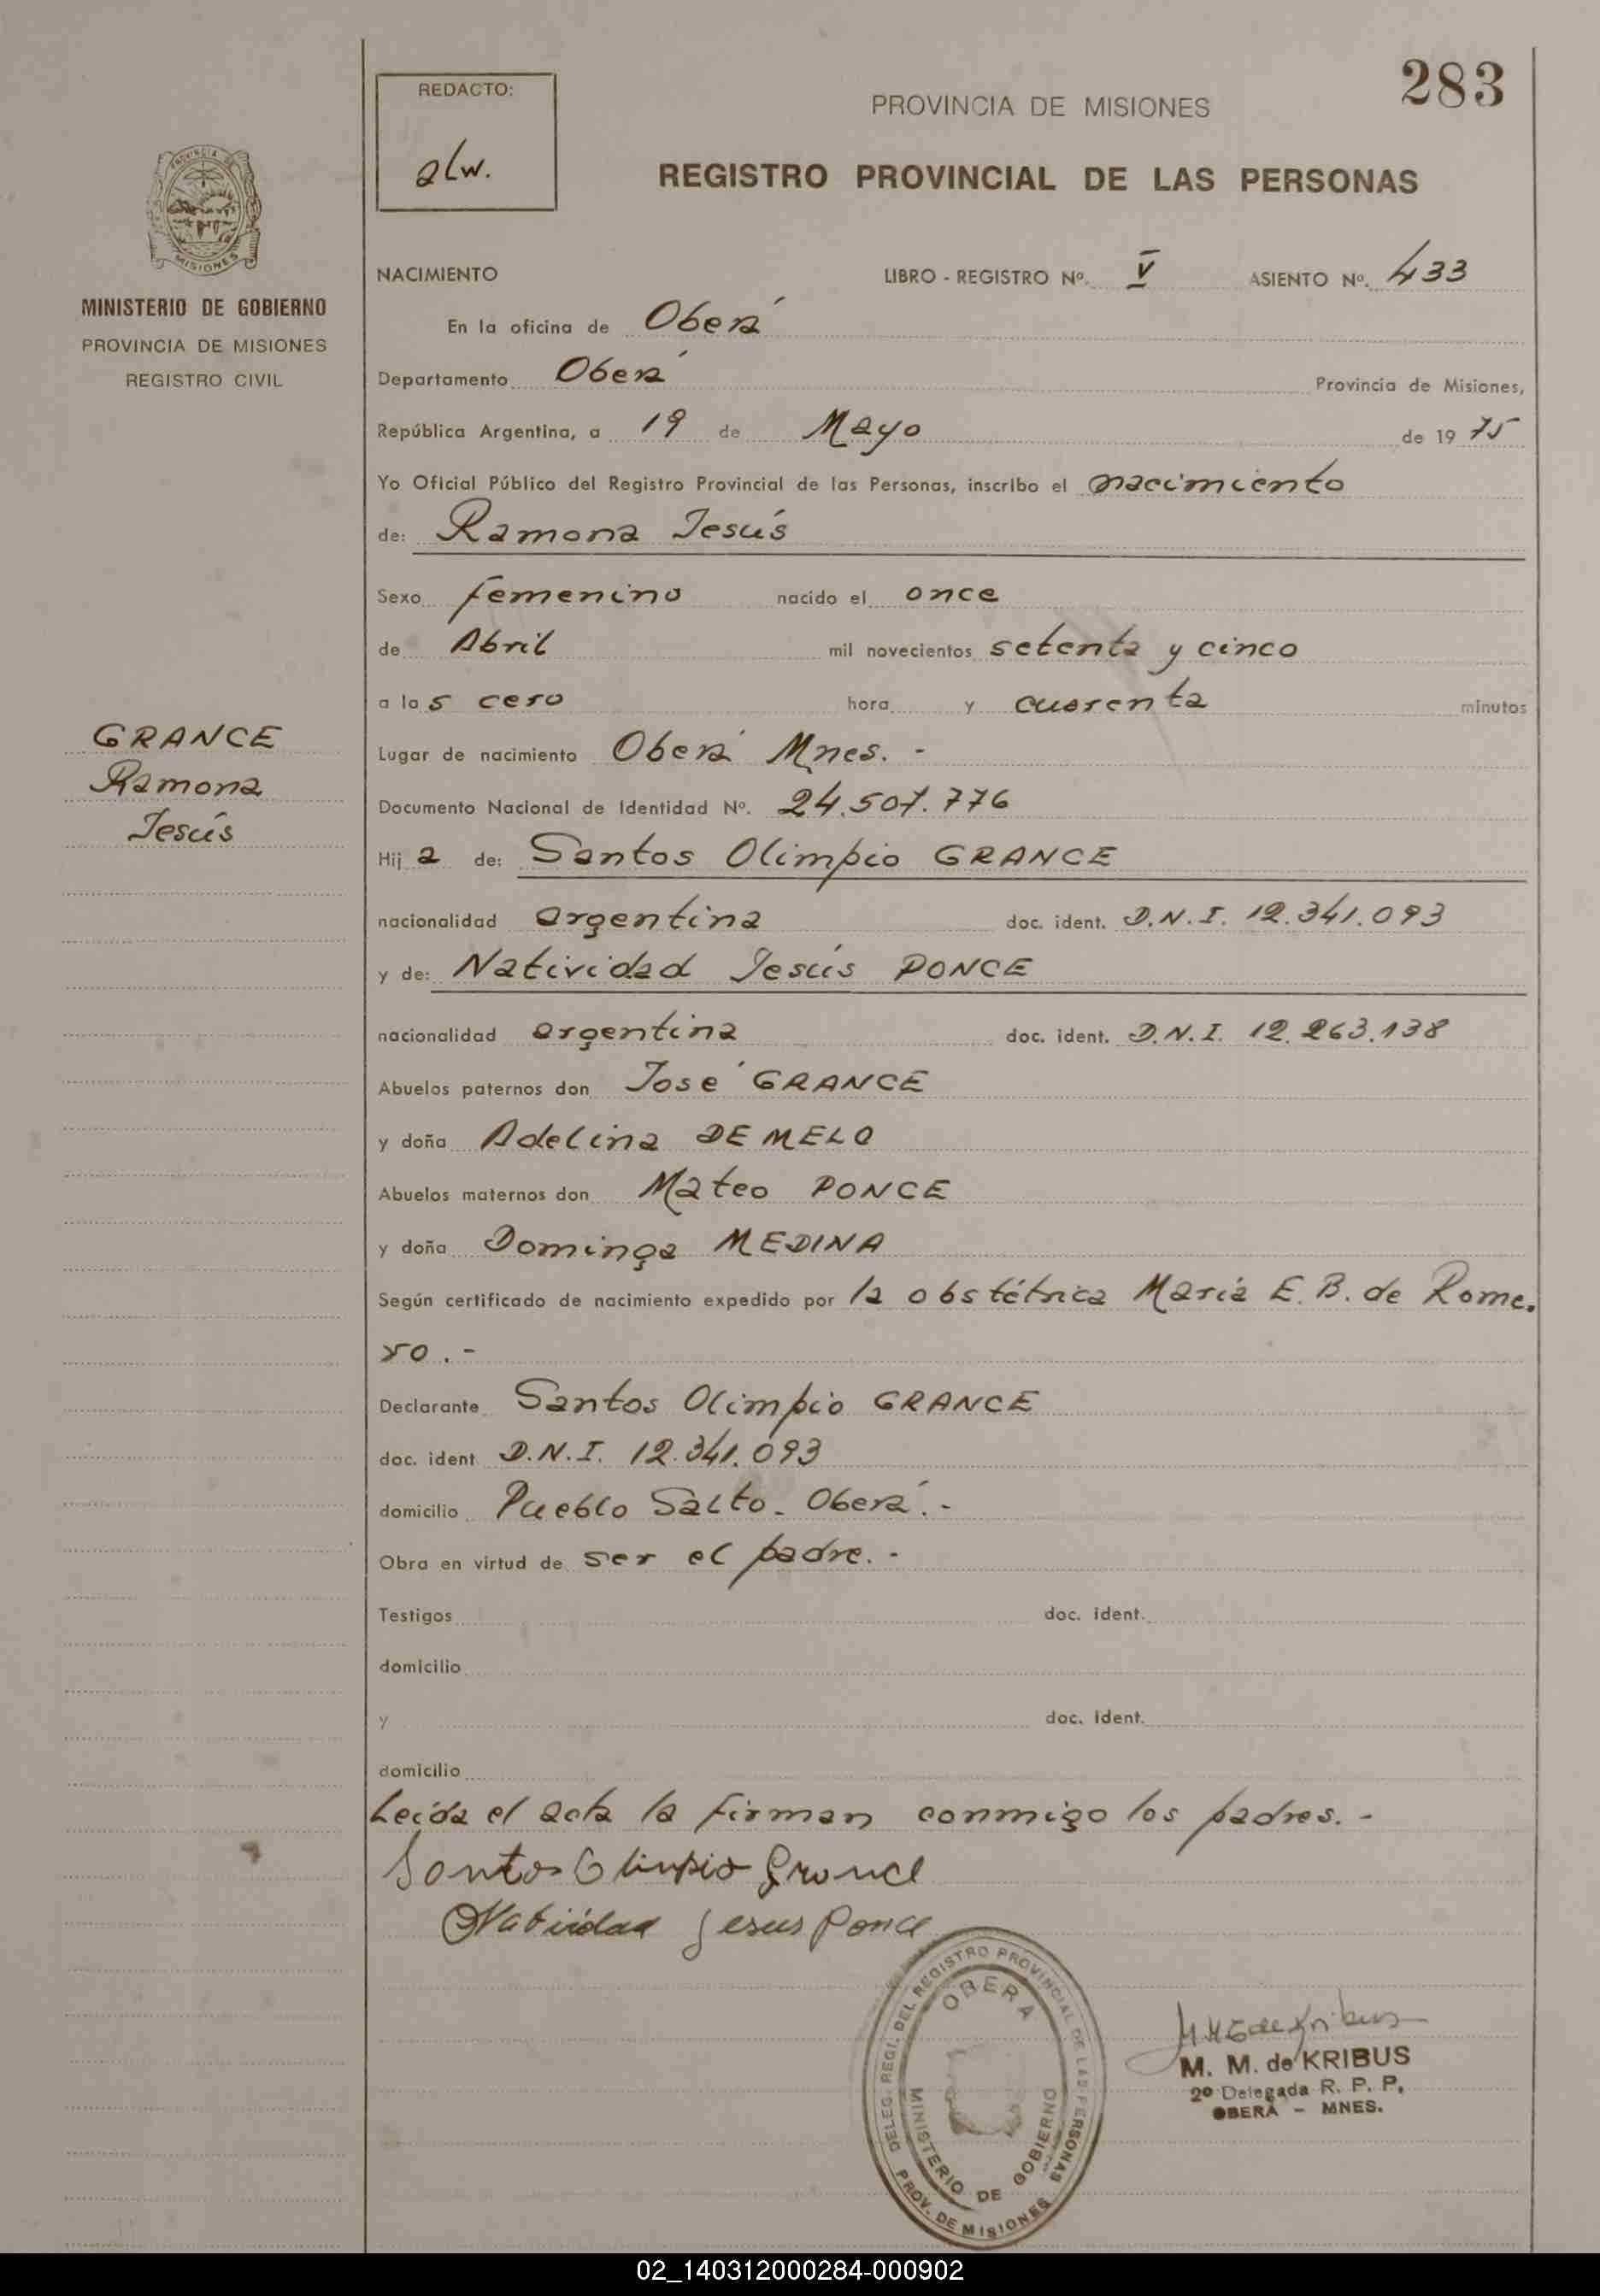 283
REDACTO:
alw.
PROVINCIA DE MISIONES
REGISTRO PROVINCIAL DE LAS PERSONAS
PROVINCIA DE MISIONES
MINISTERIO DE GOBIERNO
PROVINCIA DE MISIONES
REGISTRO CIVIL
NACIMIENTO LIBRO - REGISTRO Nº. V ASIENTO Nº. 433
En la oficina de Oberá
Departamento Oberá Provincia de Misiones,
República Argentina, a 19 de Mayo de 19 75
Yo Oficial Público del Registro Provincial de las Personas, inscribo el nacimiento
de: Ramona Jesús
Sexo femenino nacido el once
de Abril mil novecientos setenta y cinco
a la s cero hora y cuarenta minutos
GRANCE
Ramona
Jesús
Lugar de nacimiento Oberá Mnes. -
Documento Nacional de Identidad Nº. 24.507.776
Hij a de: Santos Olimpio GRANCE
nacionalidad argentina doc. ident. D.N.I. 12.341.093
y de: Natividad Jesús PONCE
nacionalidad argentina doc. ident. D.N.I. 12.263.138
Abuelos paternos don José GRANCE
y doña Adelina DE MELO
Abuelos maternos don Mateo PONCE
y doña Dominga MEDINA
Según certificado de nacimiento expedido por la obstétrica María E. B. de Rome-
ro . -
Declarante Santos Olimpio GRANCE
doc. ident D.N.I. 12.341.093
domicilio Pueblo Salto - Oberá . -
Obra en virtud de ser el padre. -
Testigos doc. ident.
domicilio
y doc. ident.
domicilio
Leída el acta la firman conmigo los padres. -
Santos Olimpio Grance
Natividad Jesus Ponce
DELEG. REGI. DEL REGISTRO PROVINCIAL DE LAS PERSONAS
OBERA
MINISTERIO DE GOBIERNO
PROV. DE MISIONES
M. M. de KRIBUS
2º Delegada R. P. P.
OBERÁ - MNES.
02_140312000284-000902